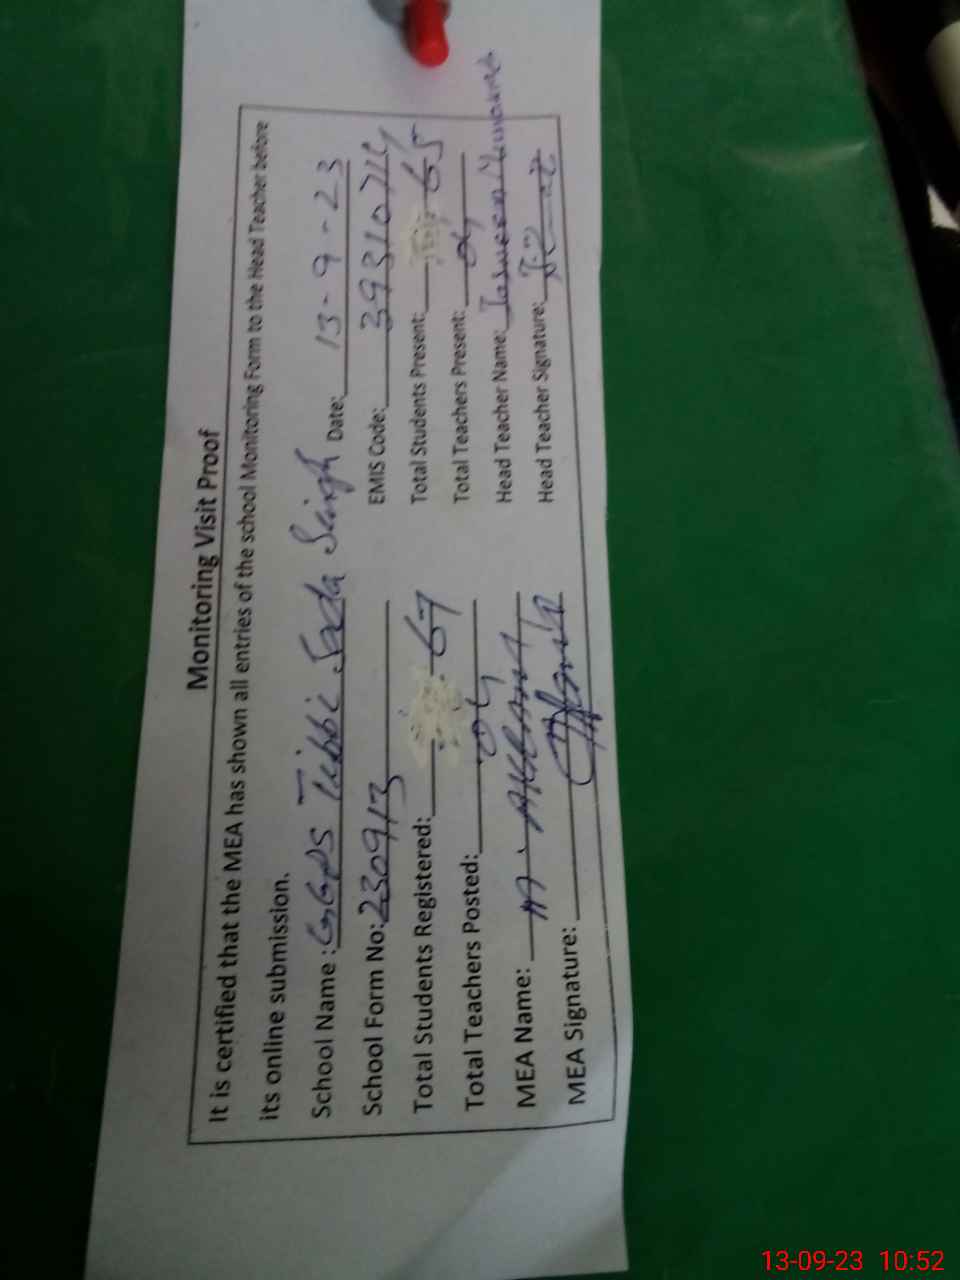 Monitoring Visit Proof
It is certified that the MEA has shown all entries of the school Monitoring Form to the Head Teacher before
its online submission.
School Name : GGPS Tibbi Sada Singh Date: 13-9-23
School Form No: 230913 EMIS Code: 39310714
Total Students Registered: 67 Total Students Present: 65
Total Teachers Posted: 04 Total Teachers Present: 04
MEA Name: M. Akram Head Teacher Name:
MEA Signature: Head Teacher Signature:
13-09-23 10:52